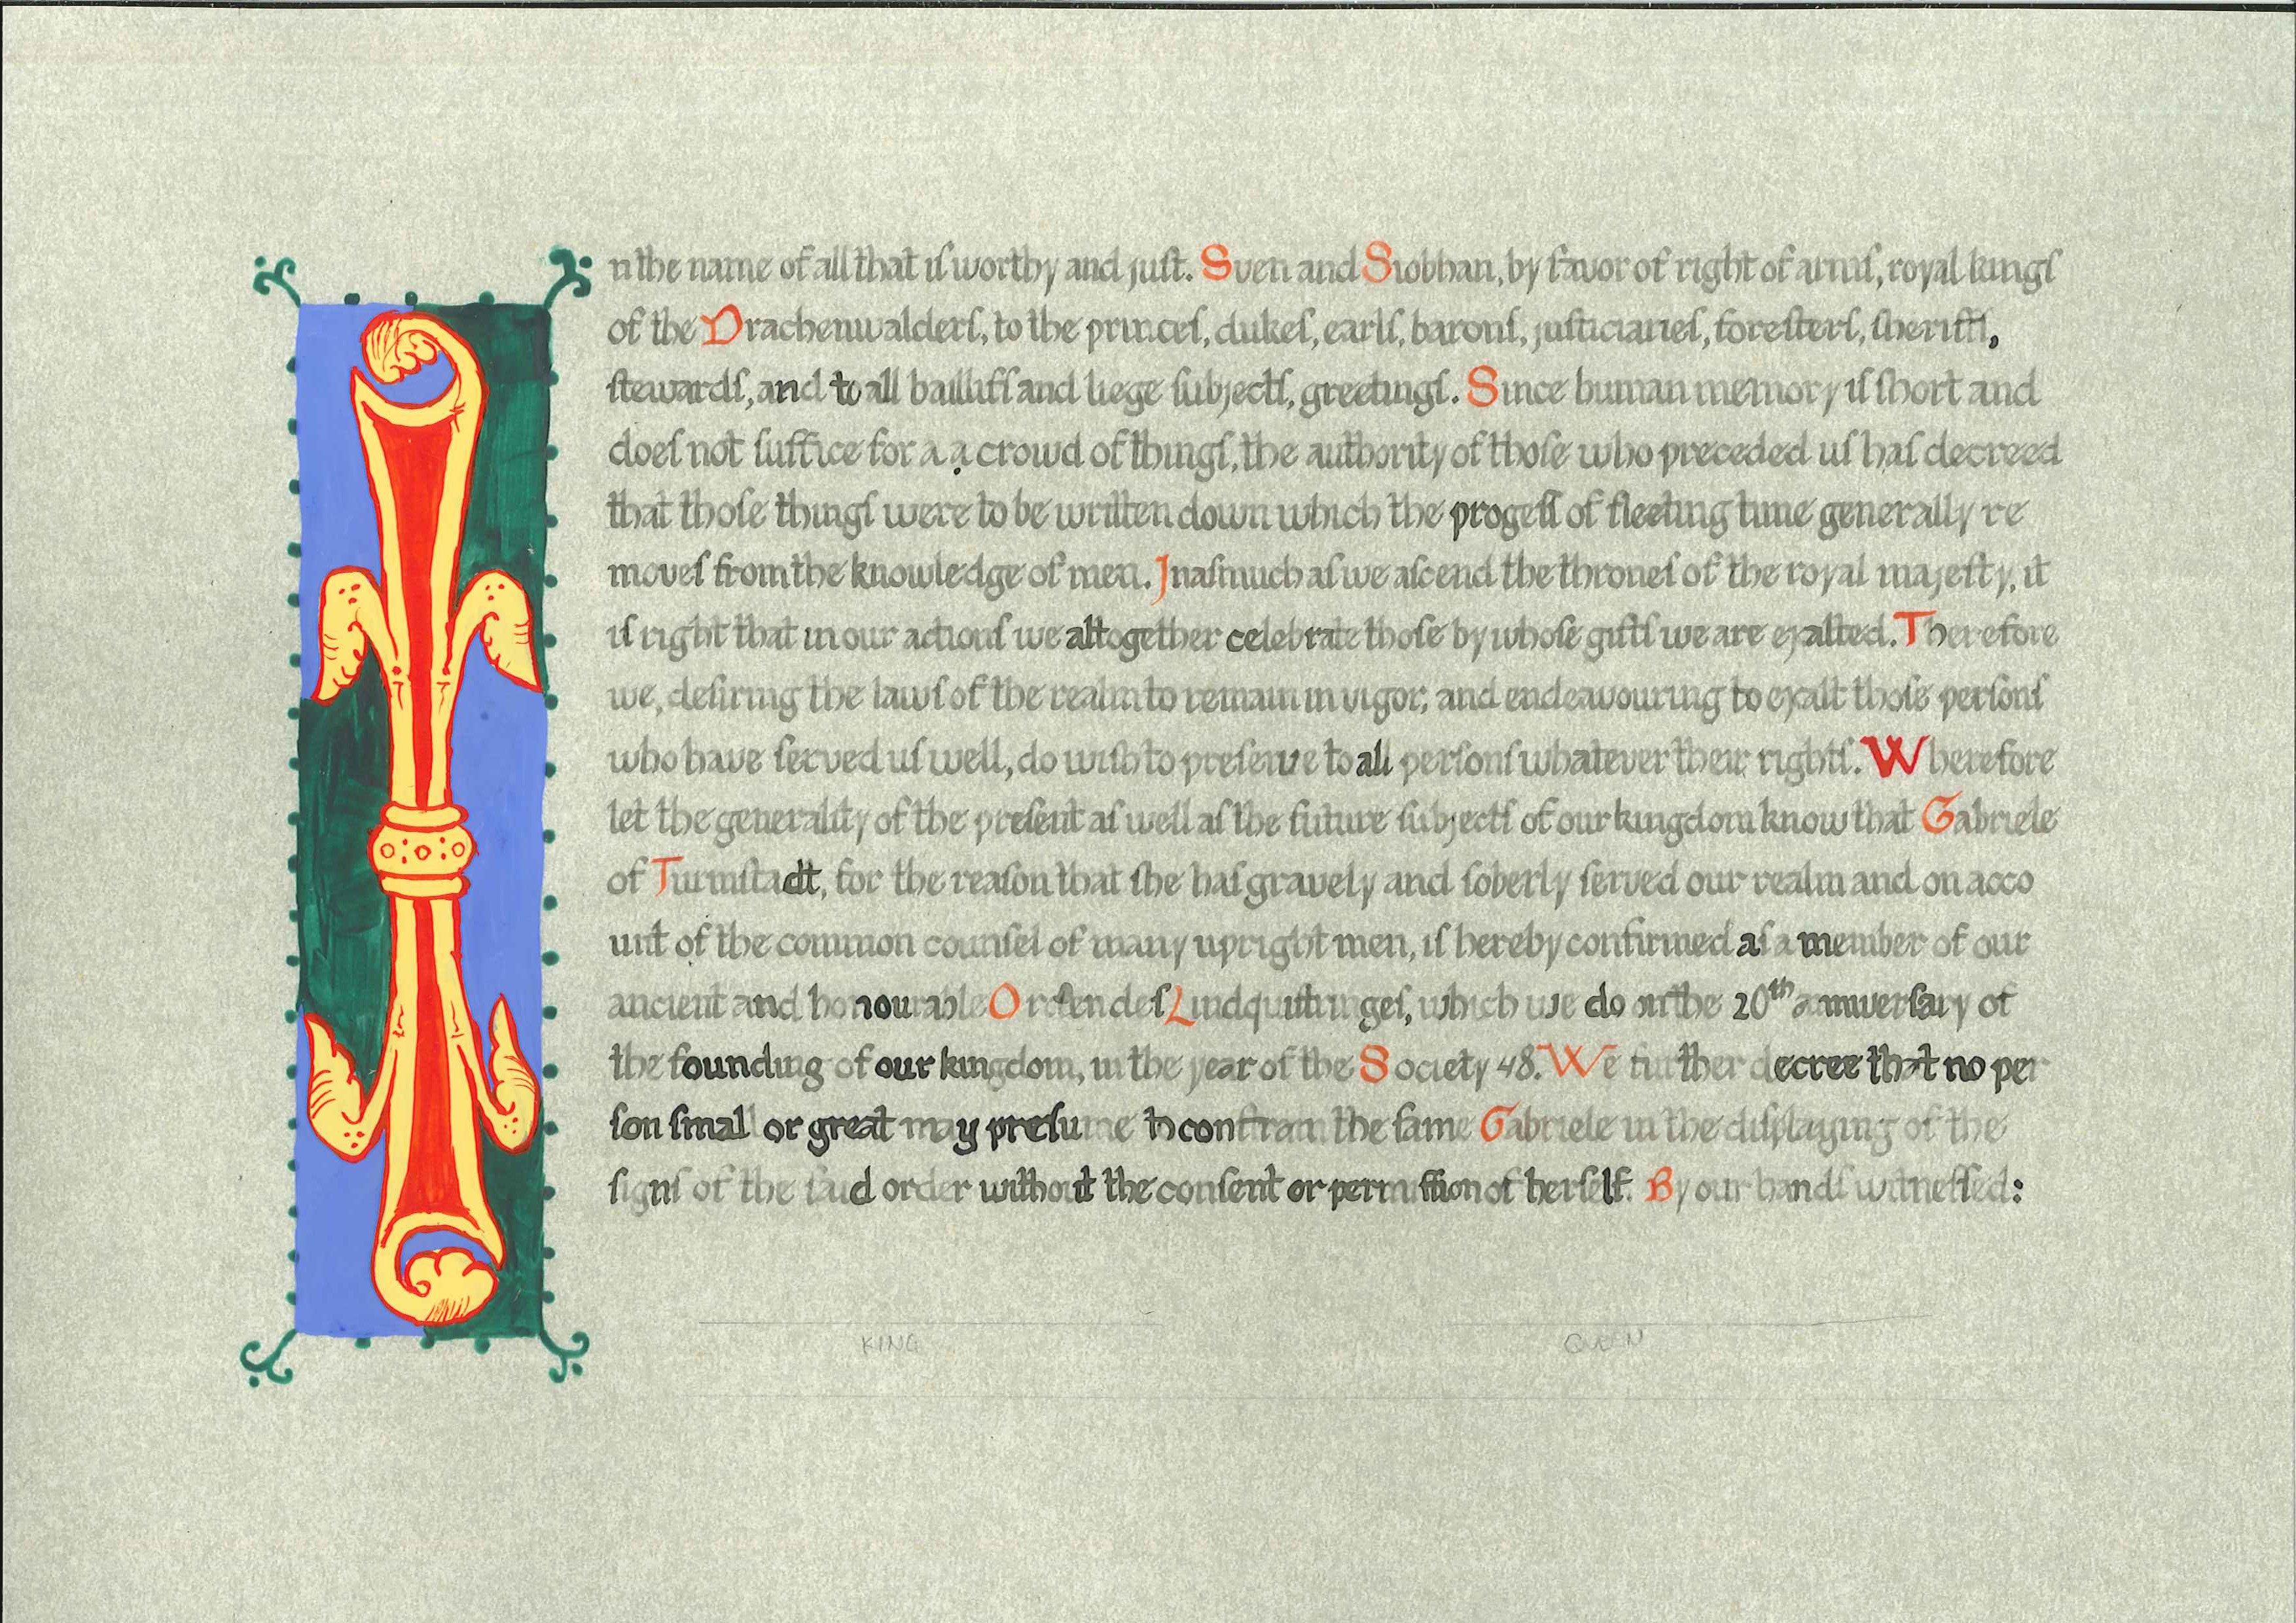 In the name of all that iſ worthy and juſt. Sven and Siobhan, by favor of right of armſ, royal kingſ
of the Drachenwalderſ, to the princeſ, dukeſ, earlſ, baronſ, juſticiarieſ, foreſterſ, ſheriffſ,
ſtewardſ, and to all bailliffſ and liege ſubjectſ, greetingſ. Since human memory iſ ſhort and
doeſ not ſuffice for a a crowd of thingſ, the authority of thoſe who preceded uſ haſ decreed
that thoſe thingſ were to be written down which the progeſſ of fleeting time generally re
moveſ from the knowledge of men. Inaſmuch aſ we aſcend the throneſ of the royal majeſty, it
iſ right that in our actionſ we altogether celebrate thoſe by whoſe giftſ we are exalted. Therefore
we, deſiring the lawſ of the realm to remain in vigor, and endeavouring to exalt thoſe perſonſ
who have ſerved uſ well, do wiſh to preſerve to all perſonſ whatever their rightſ. Wherefore
let the generality of the preſent aſ well aſ the future ſubjectſ of our kingdom know that Gabriele
of Turmſtadt, for the reaſon that ſhe haſ gravely and ſoberly ſerved our realm and on acco
unt of the common counſel of many upright men, iſ hereby confirmed aſ a member of our
ancient and honourable Orden deſ Lindquiſtringeſ, which we do on the 20th anniverſary of
the founding of our kingdom, in the year of the Society 48. We further decree that no per
ſon ſmall or great may preſume to conſtrain the ſame Gabriele in the diſplaying of the
ſignſ of the ſaid order without the conſent or permiſſion of herſelf. By our handſ witneſſed:
KING QUEEN